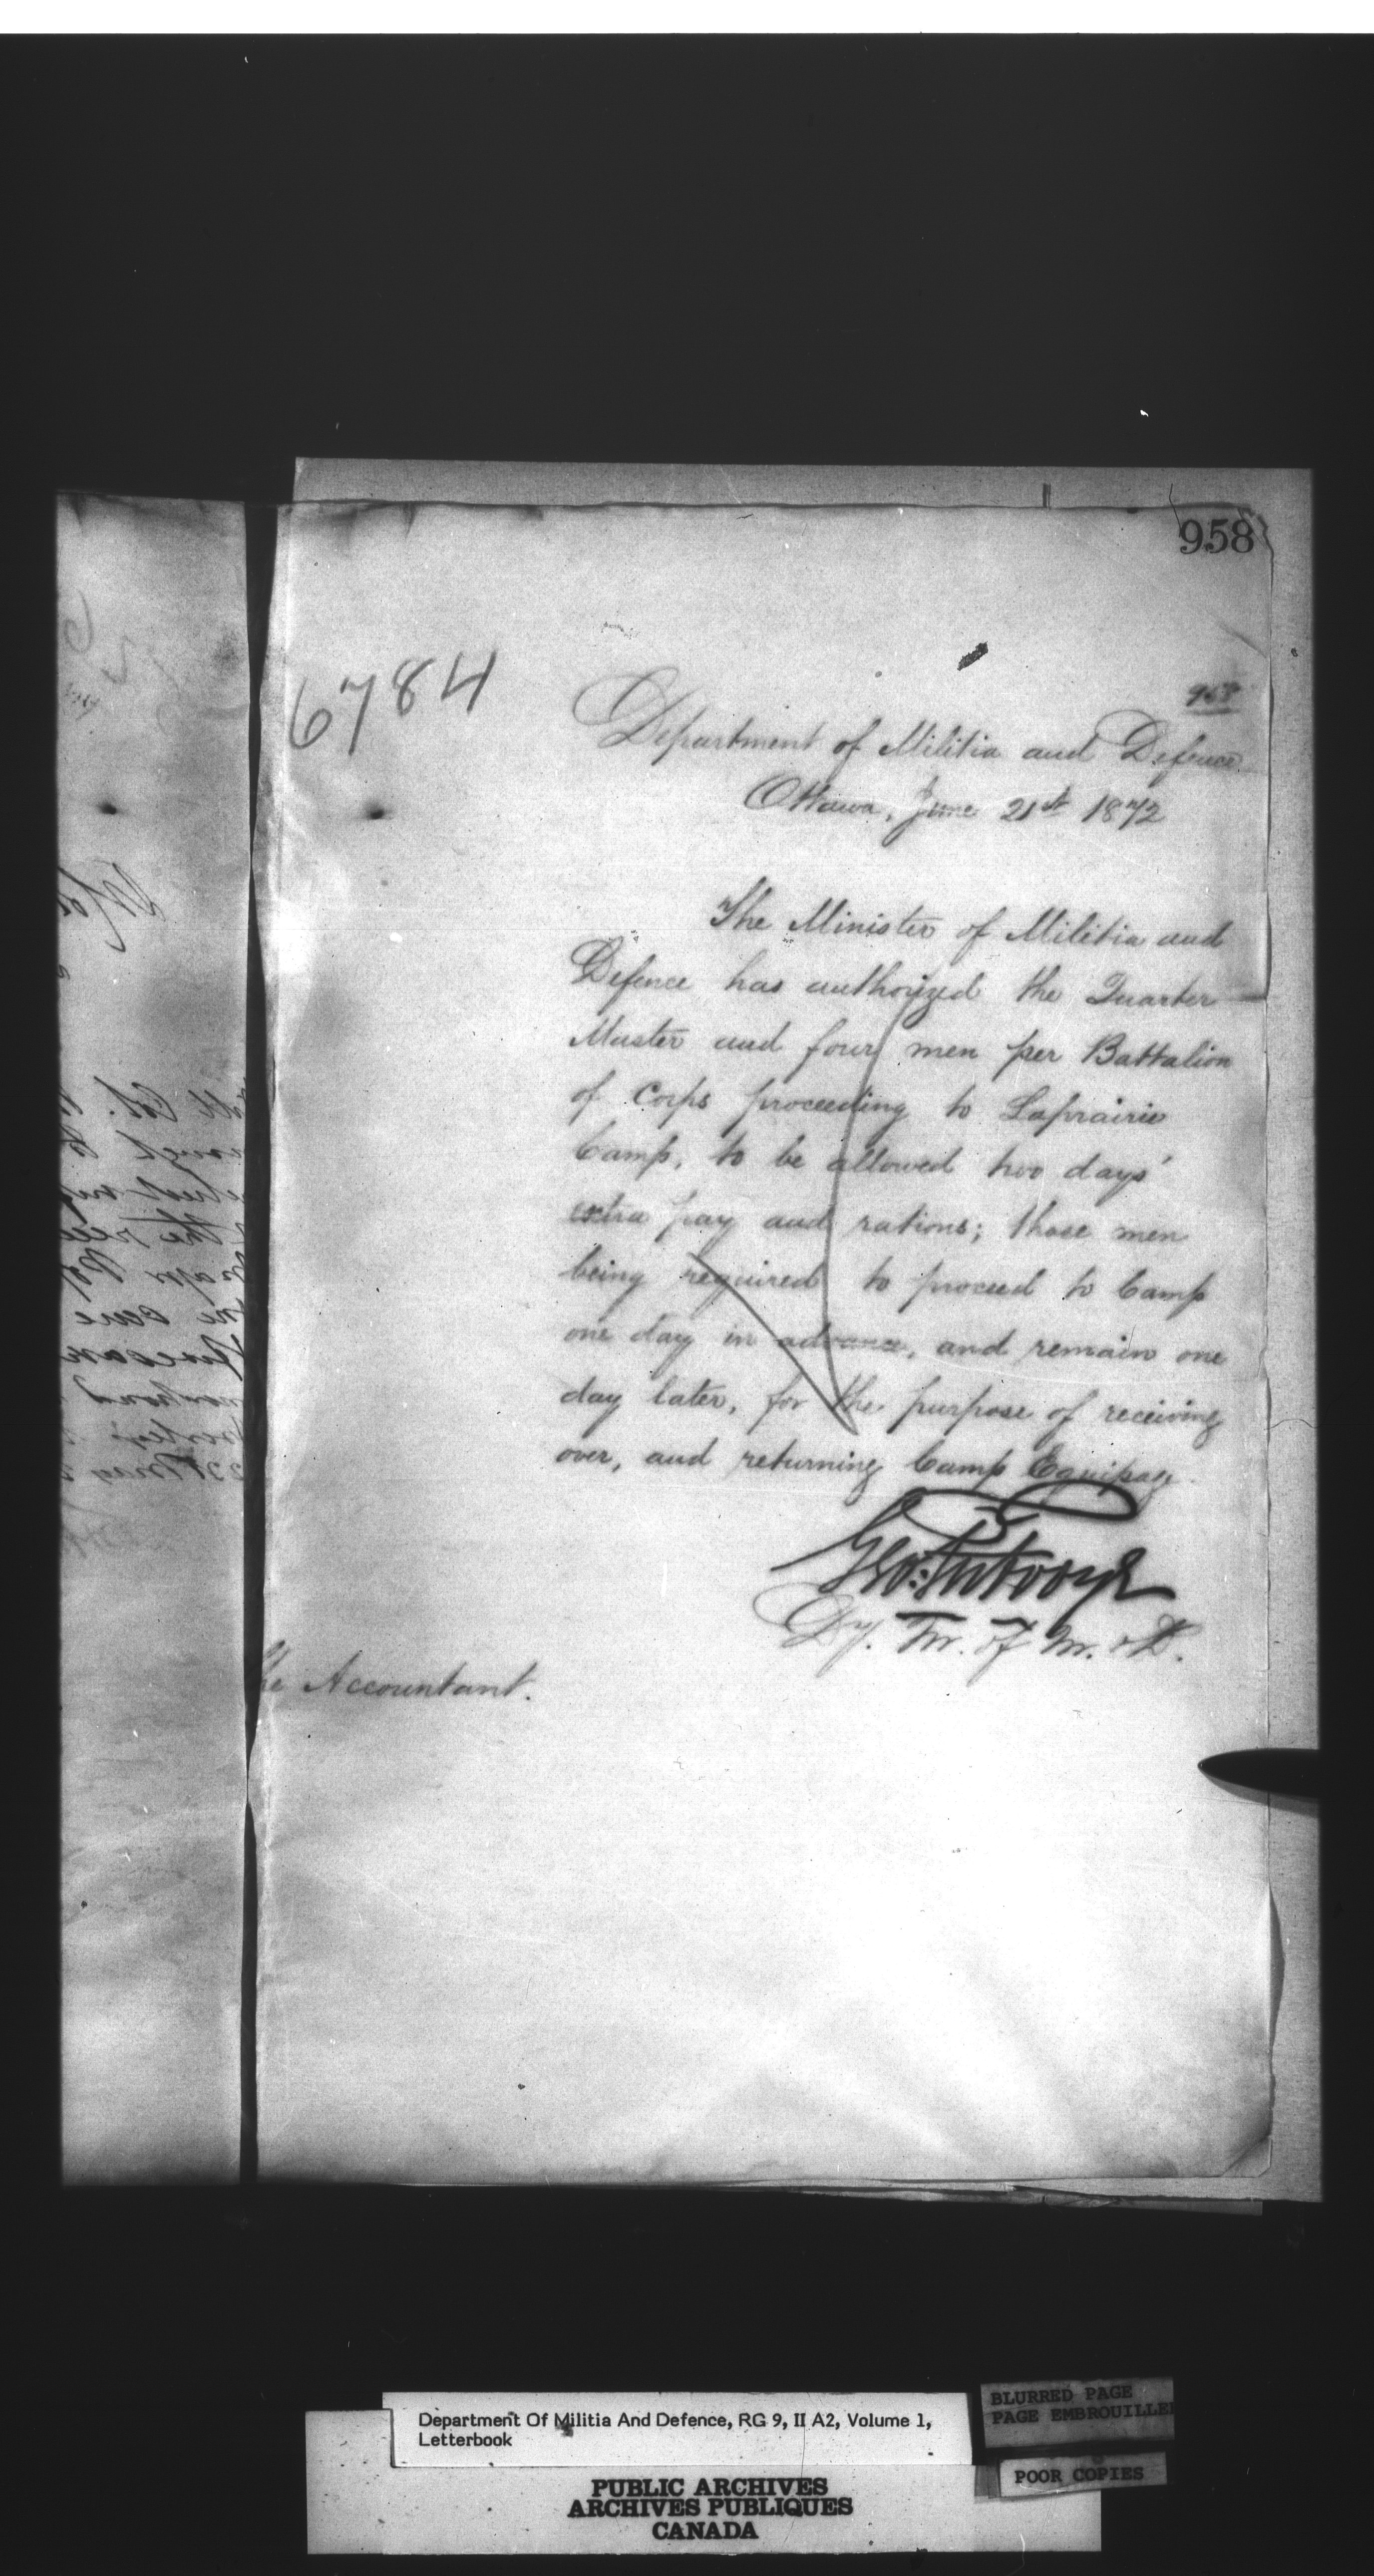 958
6784
958
Department of Militia and Defence
Ottawa, June 21st 1872
The Minister of Militia and
Defence has authorized the Quarter
Master and four men per Battalion
of Corps proceeding to Laprairie
Camp, to be allowed two days'
extra pay and rations; those men
being required to proceed to Camp
one day in advance, and remain one
day later, for the purpose of receiving
over, and returning Camp Equipage.
Geo: Futvoye
Dy. M. of M. & D.
he Accountant.
Department Of Militia And Defence, RG 9, II A2, Volume 1,
Letterbook
BLURRED PAGE
PAGE EMBROUILLEE
POOR COPIES
PUBLIC ARCHIVES
ARCHIVES PUBLIQUES
CANADA